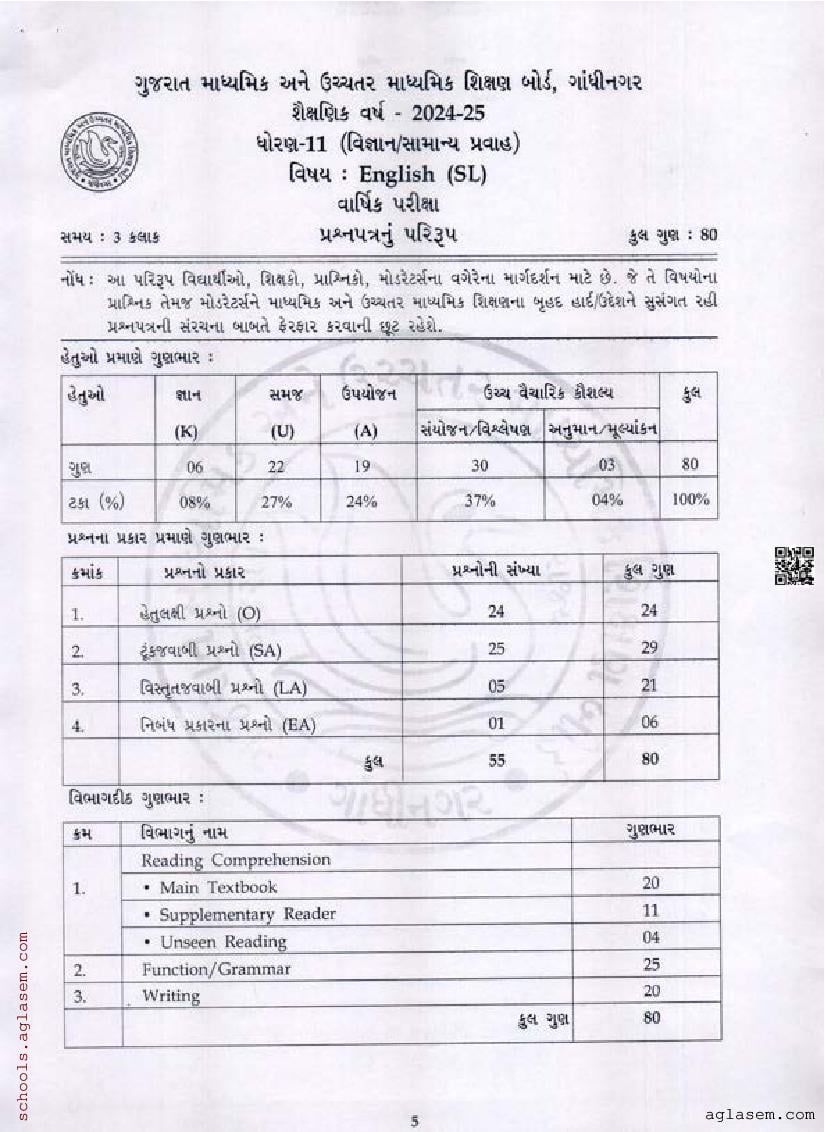 ગુજરાત માધ્યમિક અને ઉચ્ચતર માધ્યમિક શિક્ષણ બોર્ડ, ગાંધીનગર
શૈક્ષણિક વર્ષ - 2024-25
ધોરણ-11 (વિજ્ઞાન/સામાન્ય પ્રવાહ)
વિષય : English (SL)
વાર્ષિક પરીક્ષા
સમય : 3 કલાક પ્રશ્નપત્રનું પરિરૂપ કુલ ગુણ : 80
નોંધ : આ પરિરૂપ વિદ્યાર્થીઓ, શિક્ષકો, પ્રાશ્નિકો, મોડરેટર્સના વગેરેના માર્ગદર્શન માટે છે. જે તે વિષયોના
પ્રાશ્નિક તેમજ મોડરેટર્સને માધ્યમિક અને ઉચ્ચતર માધ્યમિક શિક્ષણના બૃહદ હાર્દ/ઉદેશને સુસંગત રહી
પ્રશ્નપત્રની સંરચના બાબતે ફેરફાર કરવાની છૂટ રહેશે.
હેતુઓ પ્રમાણે ગુણભાર :
હેતુઓ જ્ઞાન સમજ ઉપયોજન ઉચ્ચ વૈચારિક કૌશલ્ય કુલ
(K) (U) (A) સંયોજન/વિશ્લેષણ અનુમાન/મૂલ્યાંકન
ગુણ 06 22 19 30 03 80
ટકા (%) 08% 27% 24% 37% 04% 100%
પ્રશ્નના પ્રકાર પ્રમાણે ગુણભાર :
ક્રમાંક પ્રશ્નનો પ્રકાર પ્રશ્નોની સંખ્યા કુલ ગુણ
1. હેતુલક્ષી પ્રશ્નો (O) 24 24
2. ટૂંકજવાબી પ્રશ્નો (SA) 25 29
3. વિસ્તૃતજવાબી પ્રશ્નો (LA) 05 21
4. નિબંધ પ્રકારના પ્રશ્નો (EA) 01 06
કુલ 55 80
વિભાગદીઠ ગુણભાર :
ક્રમ વિભાગનું નામ ગુણભાર
Reading Comprehension
1. • Main Textbook 20
• Supplementary Reader 11
• Unseen Reading 04
2. Function/Grammar 25
3. Writing 20
કુલ ગુણ 80
5
schools.aglasem.com
aglasem.com